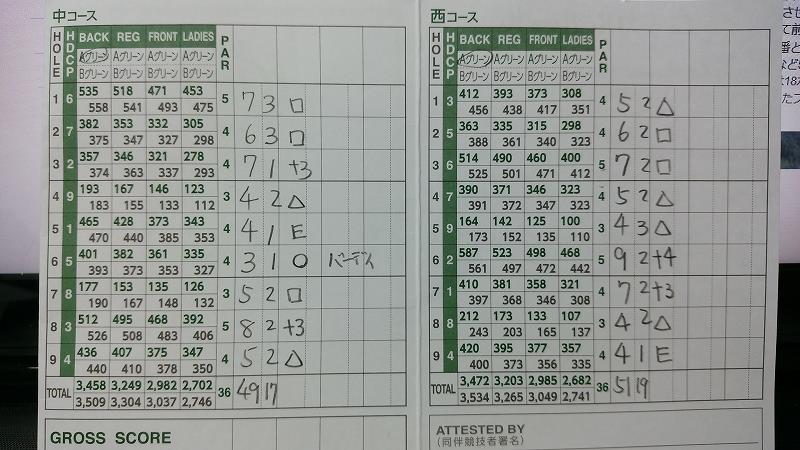 中コース
HOLE HDCP BACK REG FRONT LADIES PAR
Aグリーン Aグリーン Aグリーン Aグリーン
Bグリーン Bグリーン Bグリーン Bグリーン
1 6 535 518 471 453 5 7 3 □
558 541 493 475
2 7 382 353 332 305 4 6 3 □
375 347 327 298
3 2 357 346 321 278 4 7 1 +3
374 363 337 293
4 9 193 167 146 123 3 4 2 △
183 155 133 112
5 1 465 428 373 343 4 4 1 E
470 440 385 353
6 5 401 382 361 335 4 3 1 ○ バーディ
393 373 353 327
7 8 177 153 135 126 3 5 2 □
190 167 148 132
8 3 512 495 468 392 5 8 2 +3
526 508 483 406
9 4 436 407 375 347 4 5 2 △
440 410 378 350
TOTAL 3,458 3,249 2,982 2,702 36 49 17
3,509 3,304 3,037 2,746
GROSS SCORE
西コース
HOLE HDCP BACK REG FRONT LADIES PAR
Aグリーン Aグリーン Aグリーン Aグリーン
Bグリーン Bグリーン Bグリーン Bグリーン
1 3 412 393 373 308 4 5 2 △
456 438 417 351
2 5 363 335 315 298 4 6 2 □
388 361 340 323
3 6 514 490 460 400 5 7 2 □
525 501 471 412
4 7 390 371 346 323 4 5 2 △
391 372 347 323
5 9 164 142 125 100 3 4 3 △
173 152 135 110
6 2 587 523 498 468 5 9 2 +4
561 497 472 442
7 1 410 381 358 321 4 7 2 +3
397 368 346 308
8 8 212 173 133 107 3 4 2 △
243 203 165 137
9 4 420 395 377 357 4 4 1 E
400 373 356 335
TOTAL 3,472 3,203 2,985 2,682 36 51 19
3,534 3,265 3,049 2,741
ATTESTED BY
(同伴競技者署名)